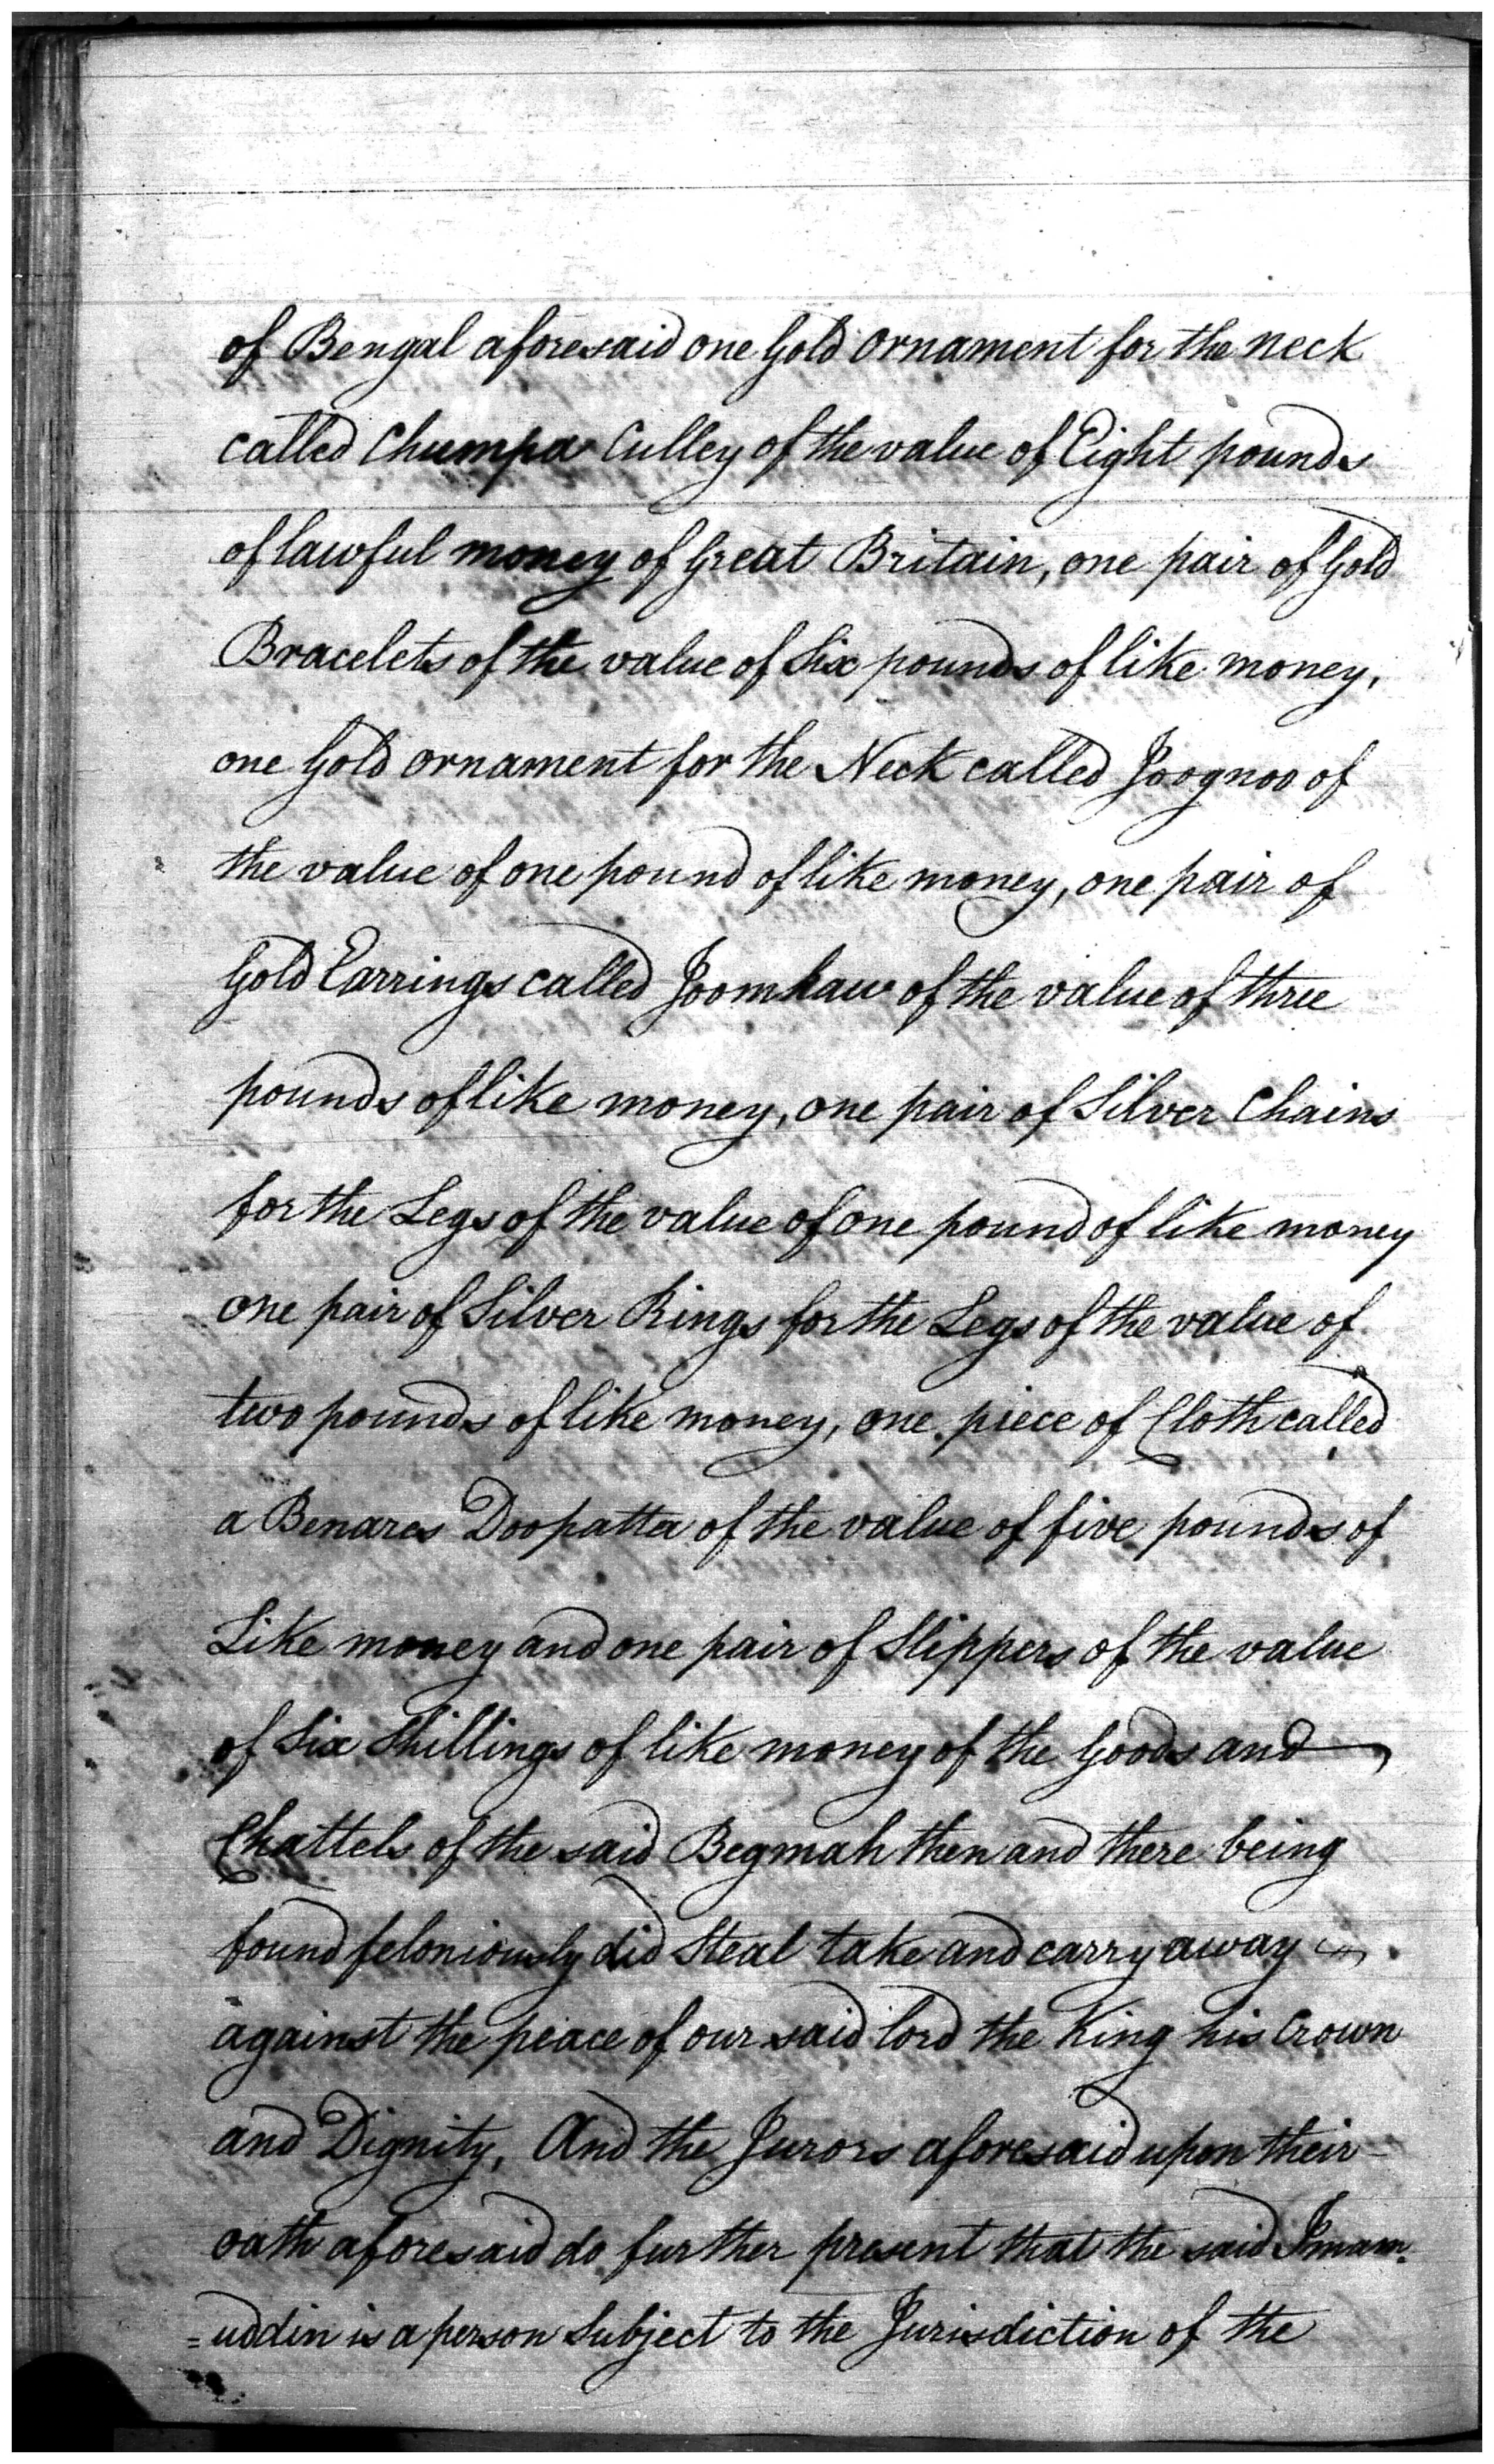 of Bengal aforesaid one Gold Ornament for the neck
called Chumpa Culley of the value of Eight pounds
of lawful money of Great Britain, one pair of Gold
Bracelets of the value of Six pounds of like money,
one Gold ornament for the Neck called Joognoo of
the value of one pound of like money, one pair of
Gold Earrings called Joomkaw of the value of three
pounds of like money, one pair of Silver Chains
for the Legs of the value of one pound of like money
one pair of Silver Rings for the Legs of the value of
two pounds of like money, one piece of Cloth called
a Benares Doopatta of the value of five pounds of
Like money and one pair of Slippers of the value
of Six Shillings of like money of the Goods and
Chattels of the said Begmah then and there being
found feloniously did Steal take and carry away
against the peace of our said lord the King his Crown
and Dignity, And the Jurors aforesaid upon their
oath aforesaid do further present that the said Imam
=uddin is a person Subject to the Jurisdiction of the